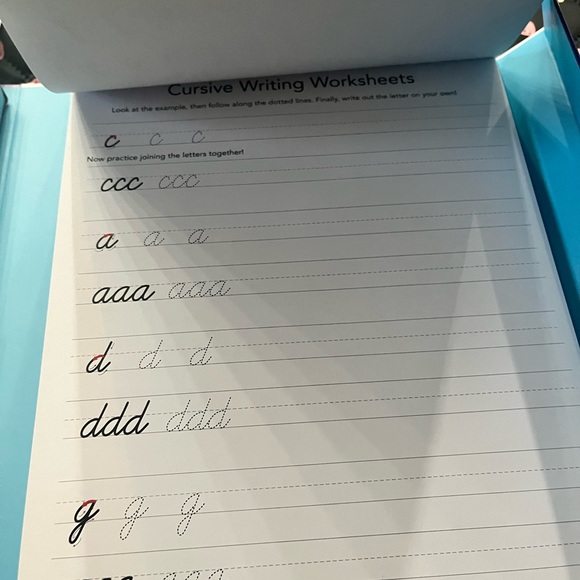 Cursive Writing Worksheets
Look at the example, then follow along the dotted lines. Finally, write out the letter on your own!
c c c
Now practice joining the letters together!
ccc ccc
a a a
aaa aaa
d d d
ddd ddd
g g g